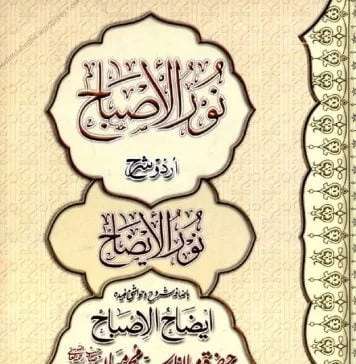 نُورُ الْأَصْبَاح
اُردو شرح
نُورُ الْإِيضَاح
باضافہ شروح و حواشی مفیدہ
ايضاح الإصباح